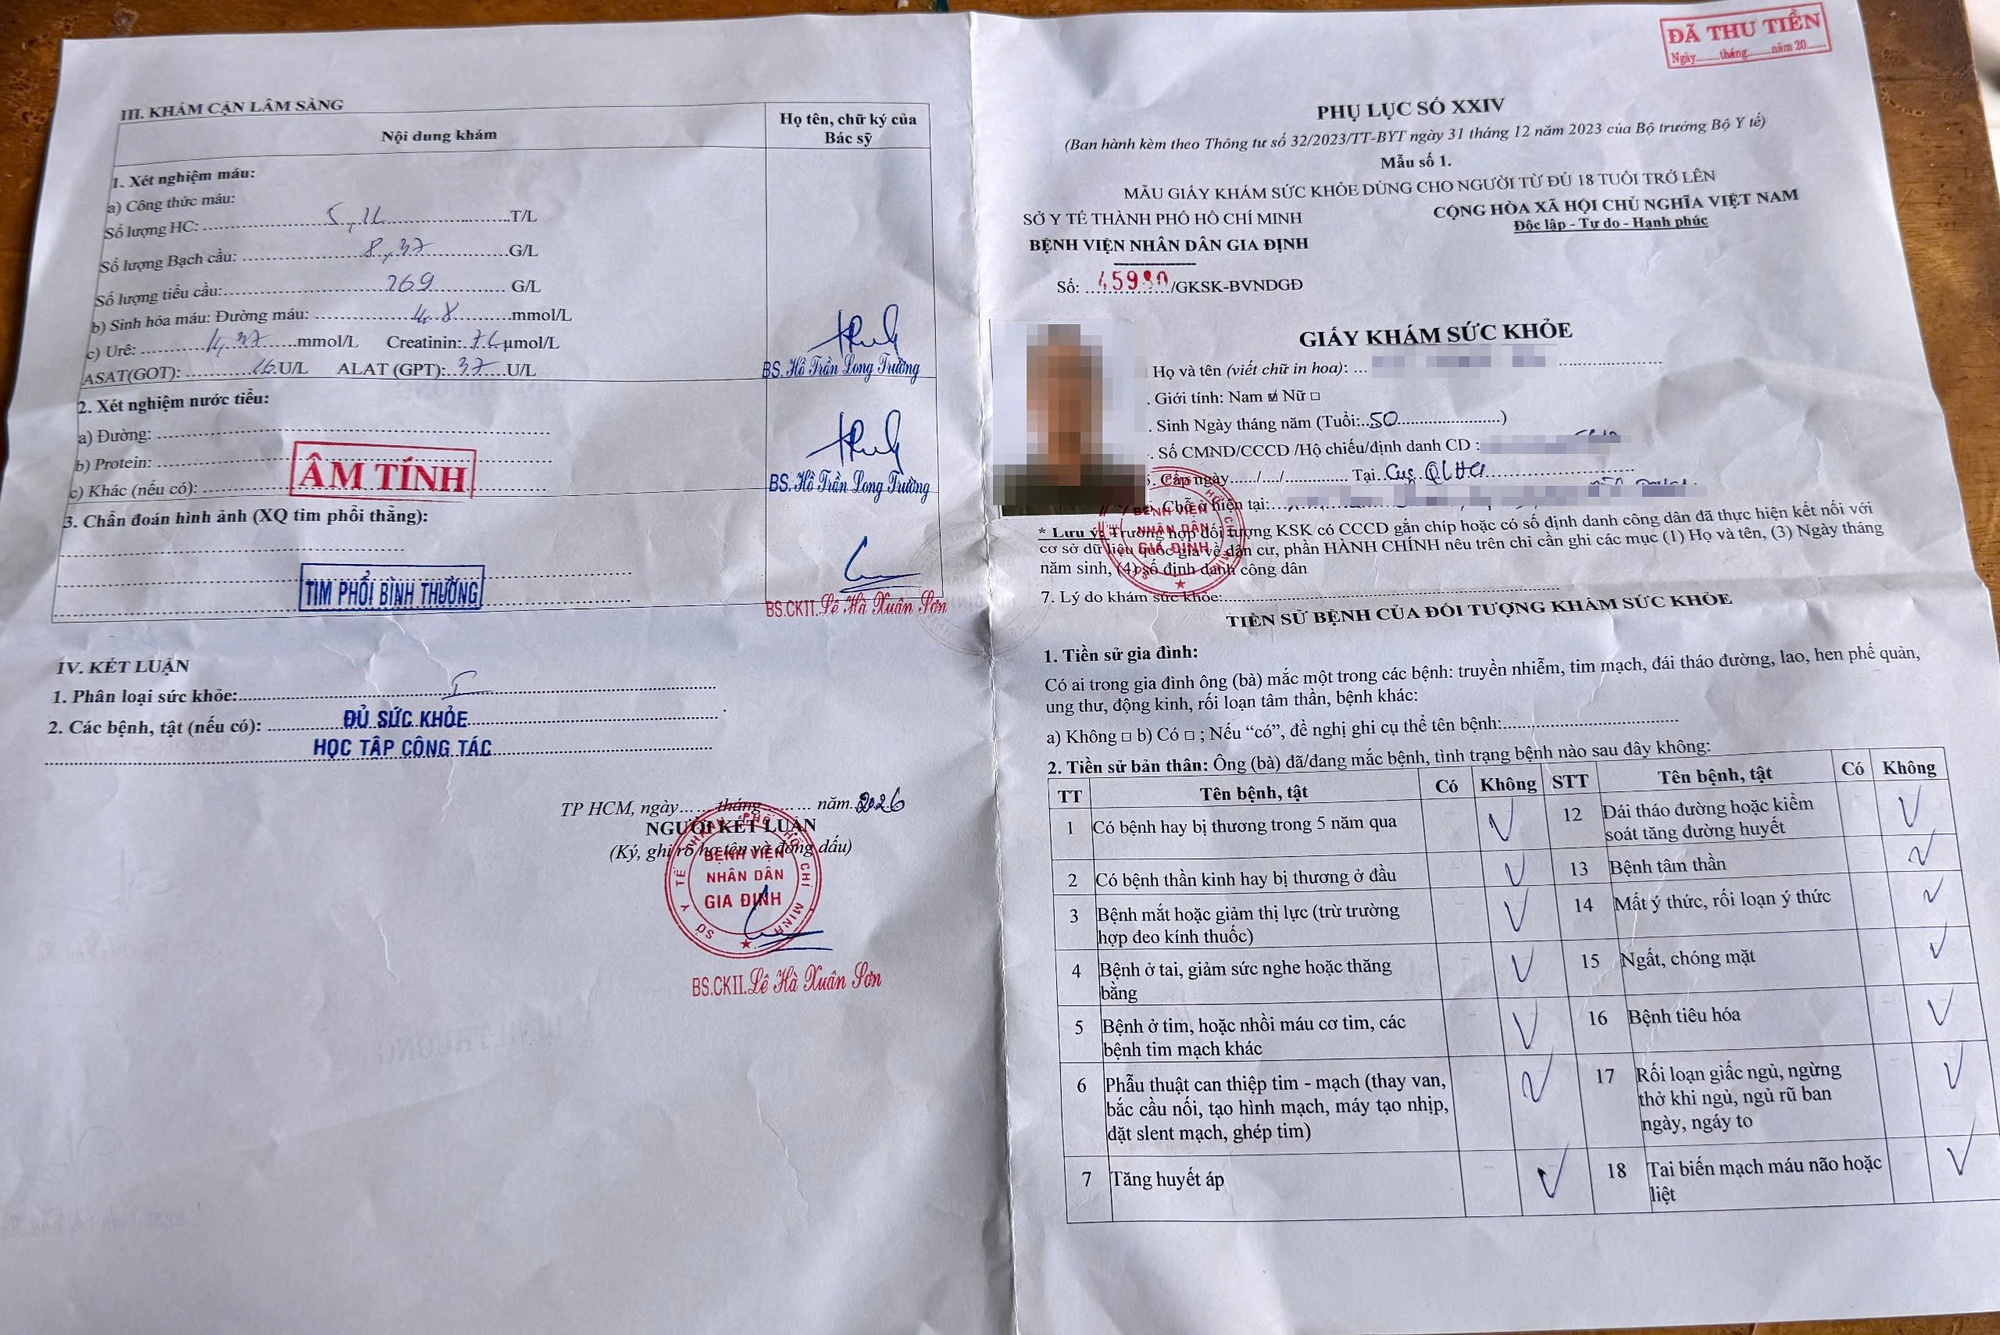 III. KHÁM CẬN LÂM SÀNG
Nội dung khám
Họ tên, chữ ký của
Bác sỹ
1. Xét nghiệm máu:
a) Công thức máu:
Số lượng HC: T/L
Số lượng Bạch cầu: 8,37 G/L
Số lượng tiểu cầu: 269 G/L
b) Sinh hóa máu: Đường máu: 4.8 mmol/L
c) Urê: 4,37 mmol/L Creatinin: µmol/L
ASAT(GOT): 16 U/L ALAT (GPT): 37 U/L
BS. Hồ Trần Long Trường
2. Xét nghiệm nước tiểu:
a) Đường:
b) Protein:
c) Khác (nếu có):
ÂM TÍNH
BS. Hồ Trần Long Trường
3. Chẩn đoán hình ảnh (XQ tim phổi thẳng):
TIM PHỔI BÌNH THƯỜNG
BS.CKII. Lê Hà Xuân Sơn
IV. KẾT LUẬN
1. Phân loại sức khỏe: I
2. Các bệnh, tật (nếu có): ĐỦ SỨC KHỎE
HỌC TẬP CÔNG TÁC
TP HCM, ngày tháng năm 2026
NGƯỜI KẾT LUẬN
(Ký, ghi rõ họ tên và đóng dấu)
SỞ Y TẾ THÀNH PHỐ HỒ CHÍ MINH
BỆNH VIỆN
NHÂN DÂN
GIA ĐỊNH
BS.CKII. Lê Hà Xuân Sơn
ĐÃ THU TIỀN
Ngày tháng năm 20
PHỤ LỤC SỐ XXIV
(Ban hành kèm theo Thông tư số 32/2023/TT-BYT ngày 31 tháng 12 năm 2023 của Bộ trưởng Bộ Y tế)
Mẫu số 1.
MẪU GIẤY KHÁM SỨC KHỎE DÙNG CHO NGƯỜI TỪ ĐỦ 18 TUỔI TRỞ LÊN
SỞ Y TẾ THÀNH PHỐ HỒ CHÍ MINH
CỘNG HÒA XÃ HỘI CHỦ NGHĨA VIỆT NAM
BỆNH VIỆN NHÂN DÂN GIA ĐỊNH
Độc lập - Tự do - Hạnh phúc
Số: 45980/GKSK-BVNDGĐ
GIẤY KHÁM SỨC KHỎE
Họ và tên (viết chữ in hoa):
. Giới tính: Nam ☑ Nữ □
. Sinh Ngày tháng năm (Tuổi: 50)
. Số CMND/CCCD /Hộ chiếu/định danh CD :
. Cấp ngày..../..../ Tại Cục QLHC
. Chỗ ở hiện tại:
BỆNH VIỆN
NHÂN DÂN
GIA ĐỊNH
* Lưu ý: Trường hợp đối tượng KSK có CCCD gắn chip hoặc có số định danh công dân đã thực hiện kết nối với
cơ sở dữ liệu quốc gia về dân cư, phần HÀNH CHÍNH nêu trên chỉ cần ghi các mục (1) Họ và tên, (3) Ngày tháng
năm sinh, (4) số định danh công dân
7. Lý do khám sức khỏe:
TIỀN SỬ BỆNH CỦA ĐỐI TƯỢNG KHÁM SỨC KHỎE
1. Tiền sử gia đình:
Có ai trong gia đình ông (bà) mắc một trong các bệnh: truyền nhiễm, tim mạch, đái tháo đường, lao, hen phế quản,
ung thư, động kinh, rối loạn tâm thần, bệnh khác:
a) Không □ b) Có □ ; Nếu “có”, đề nghị ghi cụ thể tên bệnh:
2. Tiền sử bản thân: Ông (bà) đã/đang mắc bệnh, tình trạng bệnh nào sau đây không:
TT Tên bệnh, tật Có Không STT Tên bệnh, tật Có Không
1 Có bệnh hay bị thương trong 5 năm qua
12 Đái tháo đường hoặc kiểm
soát tăng đường huyết
2 Có bệnh thần kinh hay bị thương ở đầu
13 Bệnh tâm thần
3 Bệnh mắt hoặc giảm thị lực (trừ trường
hợp đeo kính thuốc)
14 Mất ý thức, rối loạn ý thức
4 Bệnh ở tai, giảm sức nghe hoặc thăng
bằng
15 Ngất, chóng mặt
5 Bệnh ở tim, hoặc nhồi máu cơ tim, các
bệnh tim mạch khác
16 Bệnh tiêu hóa
6 Phẫu thuật can thiệp tim - mạch (thay van,
bắc cầu nối, tạo hình mạch, máy tạo nhịp,
đặt slent mạch, ghép tim)
17 Rối loạn giấc ngủ, ngừng
thở khi ngủ, ngủ rũ ban
ngày, ngáy to
7 Tăng huyết áp
18 Tai biến mạch máu não hoặc
liệt